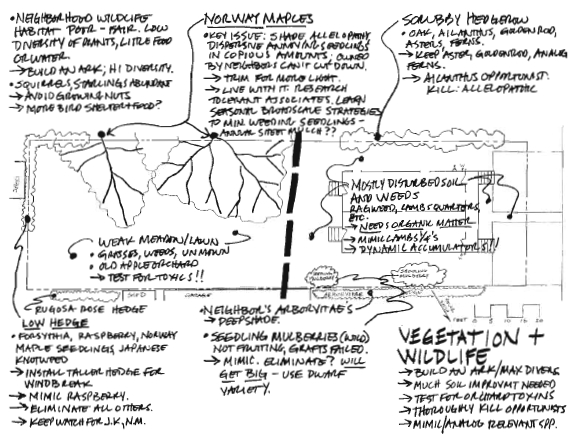 • NEIGHBORHOOD WILDLIFE
HABITAT POTR - FAIR. LOW
DIVERSITY OF PLANTS, LITTLE FOOD
OR WATER.
→ BUILD AN ARK; HI DIVERSITY.
• SQUIRRELS, STARLINGS ABUNDANT
→ AVOID GROWING NUTS
→ MORE BIRD SHELTER & FOOD?
NORWAY MAPLES
• KEY ISSUE: SHADE, ALLELOPATHY,
DISPERSIVE ANNOYING SEEDLINGS
IN COPIOUS AMOUNTS; OWNED
BY NEIGHBORS CAN'T CUT DOWN.
→ TRIM FOR MORE LIGHT.
→ LIVE WITH IT. RESEARCH
TOLERANT ASSOCIATES. LEARN
SEASONAL BROADSCALE STRATEGIES
TO MIN. WEEDING SEEDLINGS -
ANNUAL SHEET MULCH??
SCRUBBY HEDGEROW
• OAK, AILANTHUS, GOLDENROD,
ASTERS, FERNS.
→ KEEP ASTER, GOLDENROD, ANALOG
FERNS.
→ AILANTHUS OPPORTUNIST.
KILL: ALLELOPATHIC
MOSTLY DISTURBED SOIL
AND WEEDS
RAGWEED, LAMBS QUARTERS,
ETC.
→ NEEDS ORGANIC MATTER
→ MIMIC LAMBS 1/4'S
→ DYNAMIC ACCUMULATORS!!
WEAK MEADOW/LAWN
• GRASSES, WEEDS, UNMOWN
• OLD APPLE ORCHARD
→ TEST FOR TOXICS!!
SHED
GARAGE
RUGOSA ROSE HEDGE
LOW HEDGE
• FORSYTHIA, RASPBERRY, NORWAY
MAPLE SEEDLINGS, JAPANESE
KNOTWEED
→ INSTALL TALLER HEDGE FOR
WINDBREAK
→ MIMIC RASPBERRY.
→ ELIMINATE ALL OTHERS.
→ KEEP WATCH FOR J.K., N.M.
• NEIGHBOR'S ARBORVITAES
→ DEEP SHADE.
• SEEDLING MULBERRIES (WILD)
NOT FRUITING, GRAFTS FAILED.
→ MIMIC. ELIMINATE? WILL
GET BIG - USE DWARF
VARIETY.
0 5 10 15 20
VEGETATION +
WILDLIFE
→ BUILD AN ARK/MAX DIVERS.
→ MUCH SOIL IMPROVMT NEEDED
→ TEST FOR ORCHARD TOXINS
→ THOROUGHLY KILL OPPORTUNISTS
→ MIMIC/ANALOG RELEVANT SPP.